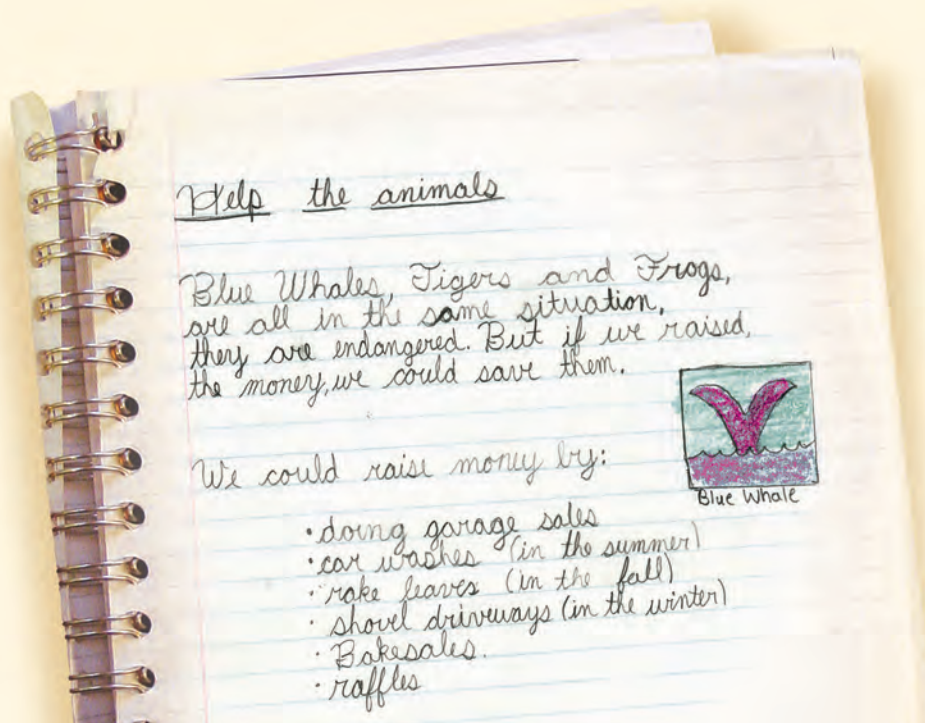 Help the animals
Blue Whales, Tigers and Frogs,
are all in the same situation,
they are endangered. But if we raised,
the money, we could save them.
Blue Whale
We could raise money by:
· doing garage sales
· car washes (in the summer)
· rake leaves (in the fall)
· shovel driveways (in the winter)
· Bakesales.
· raffles